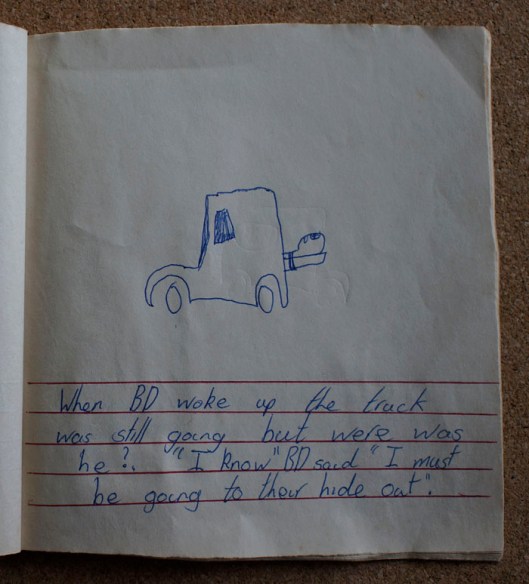 When BD woke up the truck
was still going but were was
he?. "I know" BD said "I must
be going to their hide out".